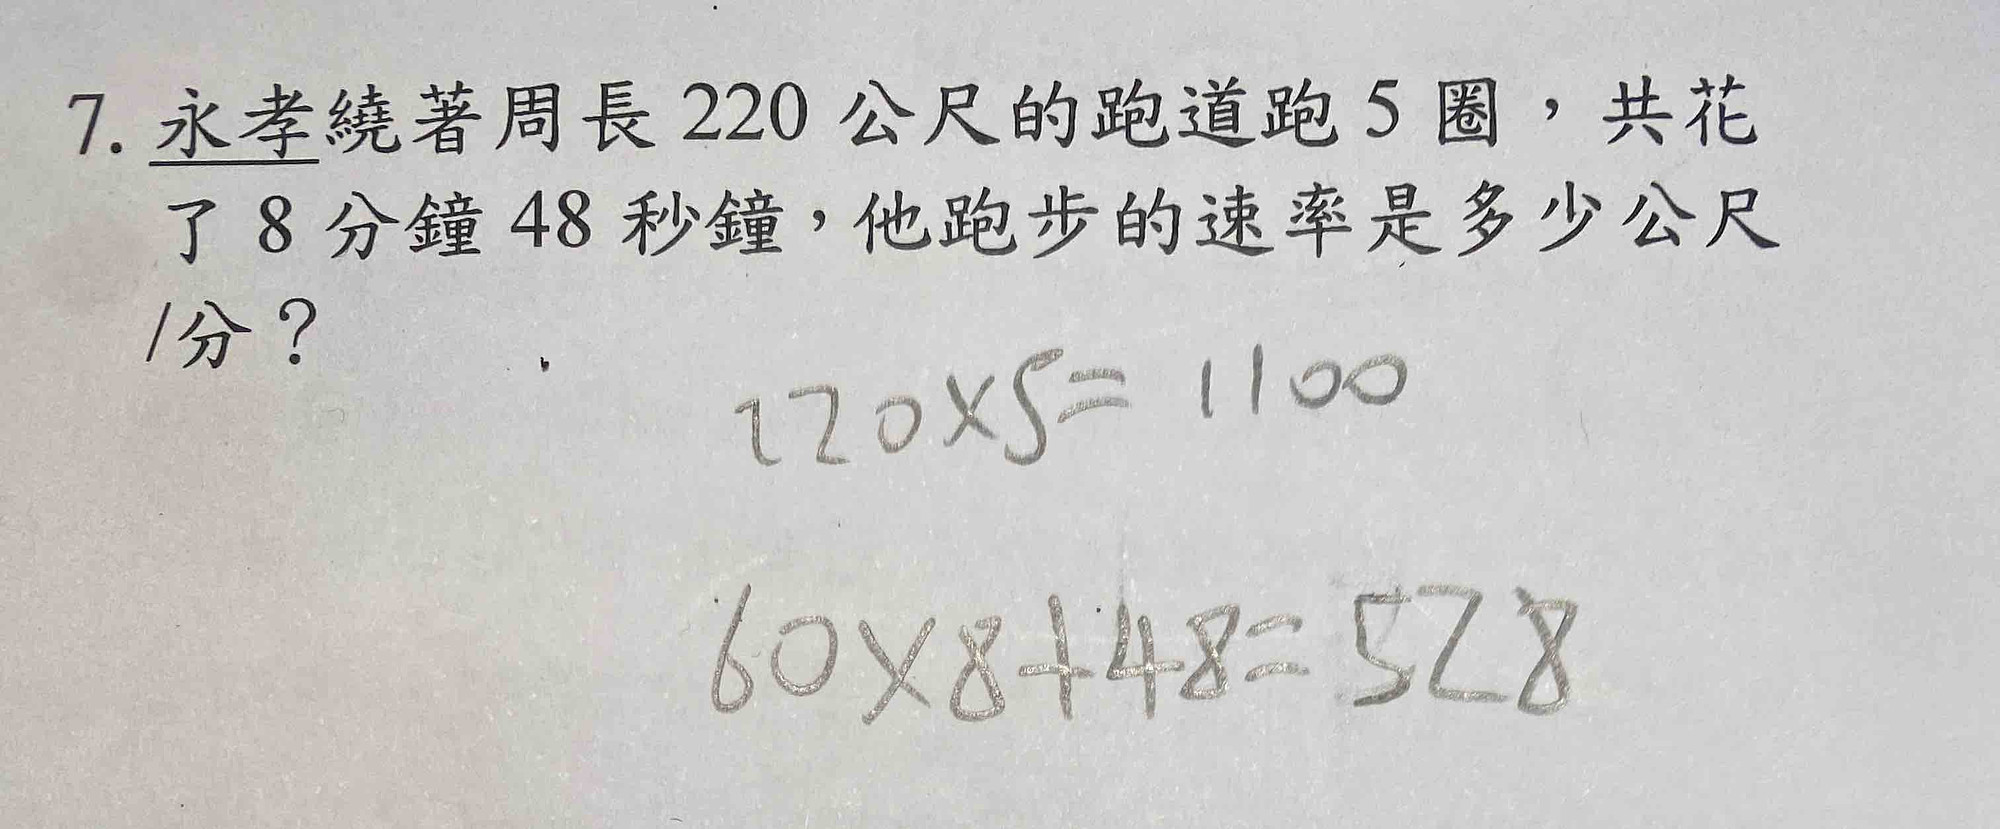 7. 永孝繞著周長 220 公尺的跑道跑 5 圈，共花
了 8 分鐘 48 秒鐘，他跑步的速率是多少公尺
/分？
220×5= 1100
60×8+48=528